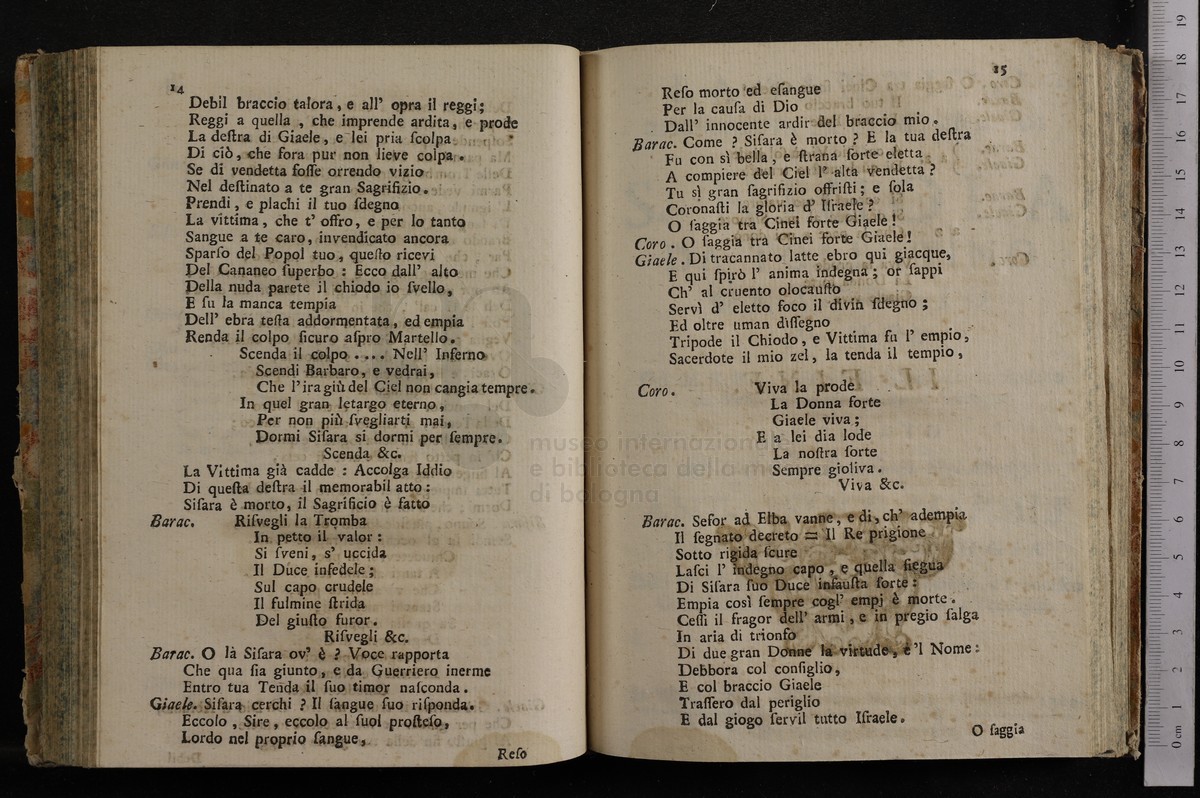 14
Debil braccio talora, e all' opra il reggi;
Reggi a quella , che imprende ardita, e prode
La deſtra di Giaele, e lei pria ſcolpa
Di ciò, che fora pur non lieve colpa.
Se di vendetta foſſe orrendo vizio
Nel deſtinato a te gran Sagrifizio.
Prendi, e plachi il tuo ſdegno
La vittima, che t' offro, e per lo tanto
Sangue a te caro, invendicato ancora
Sparſo del Popol tuo, queſto ricevi
Del Cananeo ſuperbo : Ecco dall' alto
Della nuda parete il chiodo io ſvello,
E ſu la manca tempia
Dell' ebra teſta addormentata, ed empia
Renda il colpo ſicuro aſpro Martello.
Scenda il colpo .... Nell' Inferno
Scendi Barbaro, e vedrai,
Che l'ira giù del Ciel non cangia tempre.
In quel gran letargo eterno,
Per non più ſvegliarti mai,
Dormi Siſara sì dormi per ſempre.
Scenda &c.
La Vittima già cadde : Accolga Iddio
Di queſta deſtra il memorabil atto:
Siſara è morto, il Sagrificio è fatto
Barac. Riſvegli la Tromba
In petto il valor :
Si ſveni, s' uccida
Il Duce infedele;
Sul capo crudele
Il fulmine ſtrida
Del giuſto furor.
Riſvegli &c.
Barac. O là Siſara ov' è ? Voce rapporta
Che qua ſia giunto, e da Guerriero inerme
Entro tua Tenda il ſuo timor naſconda.
Giaele. Siſara cerchi ? Il ſangue ſuo riſponda.
Eccolo , Sire, eccolo al ſuol proſteſo,
Lordo nel proprio ſangue,
Reſo
15
Reſo morto ed eſangue
Per la cauſa di Dio
Dall' innocente ardir del braccio mio.
Barac. Come ? Siſara è morto ? E la tua deſtra
Fu con sì bella, e ſtrana ſorte eletta
A compiere del Ciel l' alta vendetta ?
Tu sì gran ſagrifizio offriſti; e ſola
Coronaſti la gloria d' Iſraele ?
O ſaggia tra Cinei forte Giaele !
Coro . O ſaggia tra Cinei forte Giaele!
Giaele . Di tracannato latte ebro qui giacque,
E qui ſpirò l' anima indegna ; or ſappi
Ch' al cruento olocauſto
Servì d' eletto foco il divin ſdegno ;
Ed oltre uman diſſegno
Tripode il Chiodo, e Vittima fu l' empio,
Sacerdote il mio zel, la tenda il tempio,
Coro. Viva la prode
La Donna forte
Giaele viva ;
E a lei dia lode
La noſtra ſorte
Sempre gioliva.
Viva &c.
Barac. Seſor ad Elba vanne, e di, ch' adempia
Il ſegnato decreto = Il Re prigione
Sotto rigida ſcure
Laſci l' indegno capo , e quella ſiegua
Di Siſara ſuo Duce infauſta ſorte :
Empia così ſempre cogl' empj è morte.
Ceſſi il fragor dell' armi, e in pregio ſalga
In aria di trionfo
Di due gran Donne la virtude, e 'l Nome:
Debbora col conſiglio,
E col braccio Giaele
Traſſero dal periglio
E dal giogo ſervil tutto Iſraele.
O ſaggia
museo internazionale
e biblioteca della musica
di bologna
0 cm 1 2 3 4 5 6 7 8 9 10 11 12 13 14 15 16 17 18 19